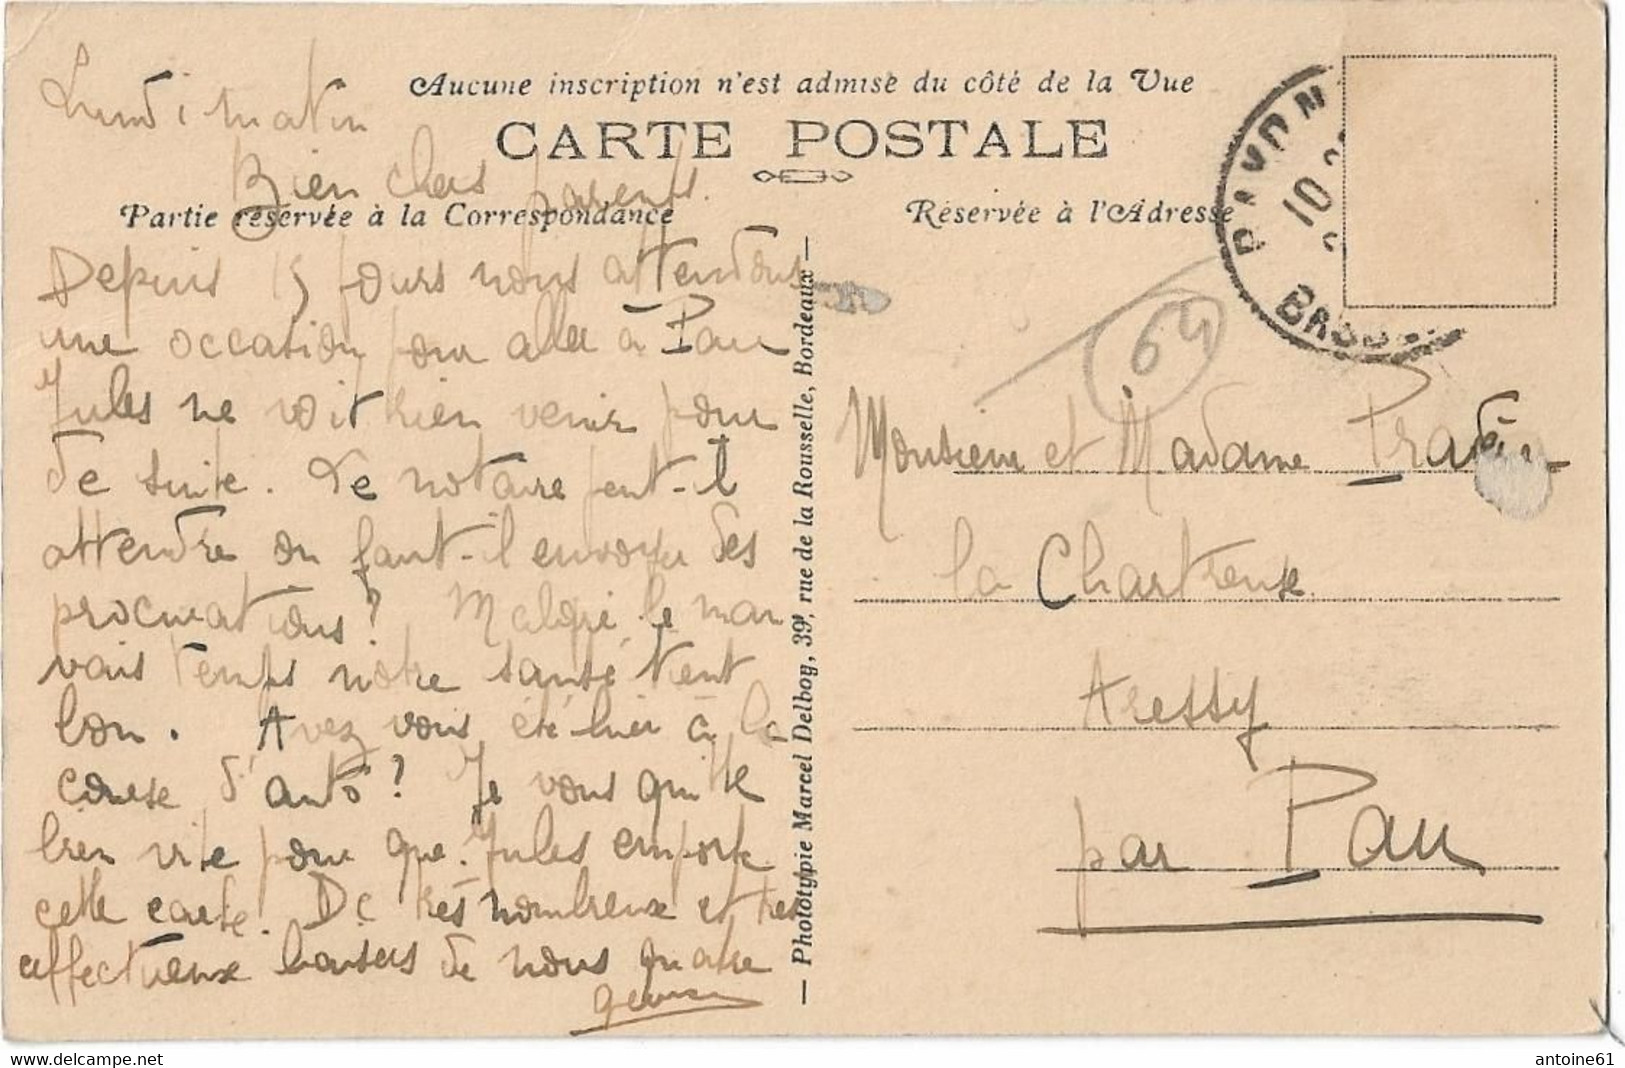 Aucune inscription n'est admise du côté de la Vue
CARTE POSTALE
Partie réservée à la Correspondance
Réservée à l'Adresse
Lundi matin
Bien chers parents.
Depuis 15 jours nous attendons
une occasion pour aller à Pau
Jules ne voit rien venir pour
de suite. Le notaire peut-il
attendre ou faut-il envoyer des
procurations? Malgré le mau
vais temps notre santé tient
bon. Avez vous été hier à la
course d'auto? Je vous quitte
bien vite pour que Jules emporte
cette carte. De très nombreux et très
affectueux baisers de nous quatre
— Phototypie Marcel Delboy, 39, rue de la Rousselle, Bordeaux —
10
64
Monsieur et Madame
la Chartreuse
Aressy
par Pau
antoine61